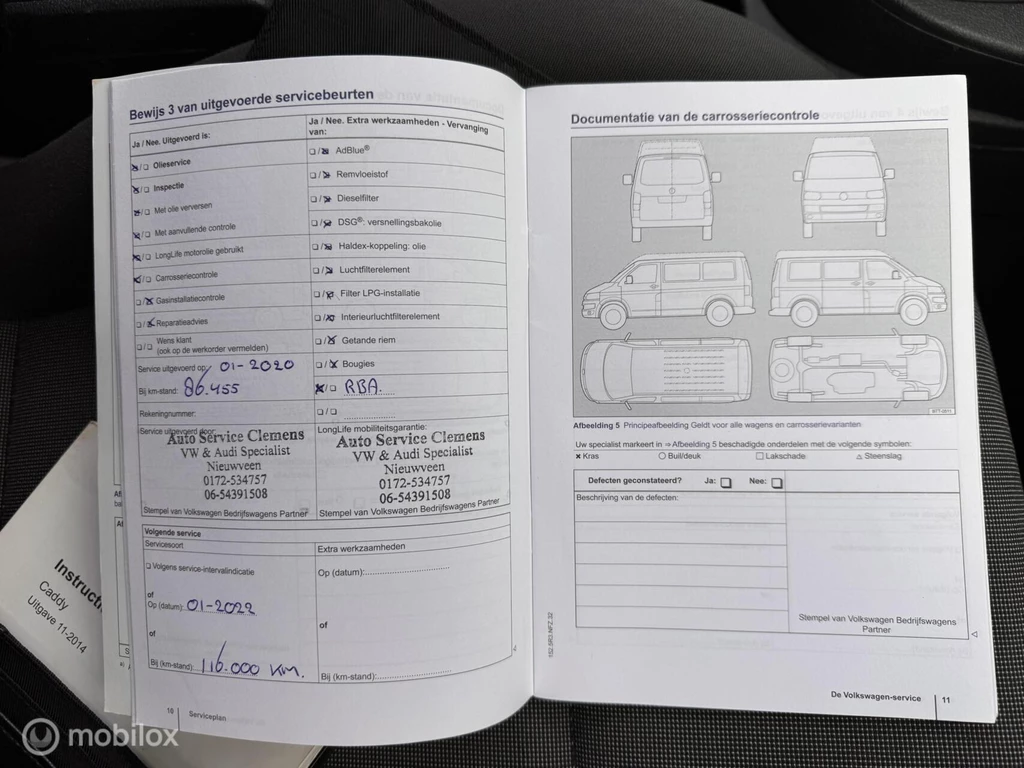 Bewijs 3 van uitgevoerde servicebeurten
Ja / Nee. Uitgevoerd is:
Olieservice
Inspectie
Met olie verversen
Met aanvullende controle
LongLife motorolie gebruikt
Carrosseriecontrole
Gasinstallatiecontrole
Reparatieadvies
Wens klant
(ook op de werkorder vermelden)
Service uitgevoerd op: 01-2020
Bij km-stand: 86.455
Rekeningnummer:
Service uitgevoerd door:
Auto Service Clemens
VW & Audi Specialist
Nieuwveen
0172-534757
06-54391508
Stempel van Volkswagen Bedrijfswagens Partner
Ja / Nee. Extra werkzaamheden - Vervanging
van:
AdBlue®
Remvloeistof
Dieselfilter
DSG®: versnellingsbakolie
Haldex-koppeling: olie
Luchtfilterelement
Filter LPG-installatie
Interieurluchtfilterelement
Getande riem
Bougies
RBA.
LongLife mobiliteitsgarantie:
Auto Service Clemens
VW & Audi Specialist
Nieuwveen
0172-534757
06-54391508
Stempel van Volkswagen Bedrijfswagens Partner
Volgende service
Servicesoort
Volgens service-intervalindicatie
of
Op (datum): 01-2022
of
Bij (km-stand): 116.000 KM.
Extra werkzaamheden
Op (datum):
of
Bij (km-stand):
10 Serviceplan
Documentatie van de carrosseriecontrole
B7T-0611
Afbeelding 5 Principeafbeelding Geldt voor alle wagens en carrosserievarianten
Uw specialist markeert in ⇨ Afbeelding 5 beschadigde onderdelen met de volgende symbolen:
× Kras ○ Buil/deuk □ Lakschade △ Steenslag
Defecten geconstateerd? Ja: Nee:
Beschrijving van de defecten:
Stempel van Volkswagen Bedrijfswagens
Partner
152.5R3.NFZ.32
De Volkswagen-service 11
Caddy
Uitgave 11-2014
mobilox